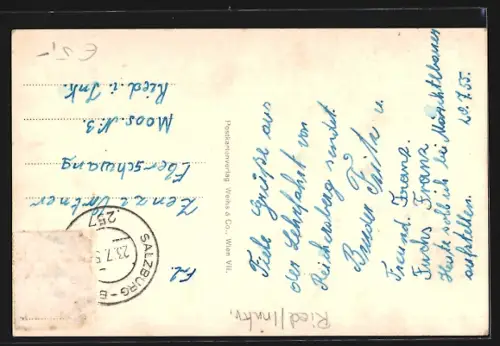 Viele Grüße aus
der Lehrfahrt von
Reichersberg sendet
Bruder Fritz u.
Freund. Franz.
Fuchs Franz
Heute soll ich bei
aufstellen. 20.7.55.
Postkartenverlag Weiss & Co., Wien VII.
Frl.
Zenzi
Eberschwang
Moos N. 3.
Ried i. Ink.
SALZBURG
257
23.7.5
Ried/Innkr.
€ 5,-